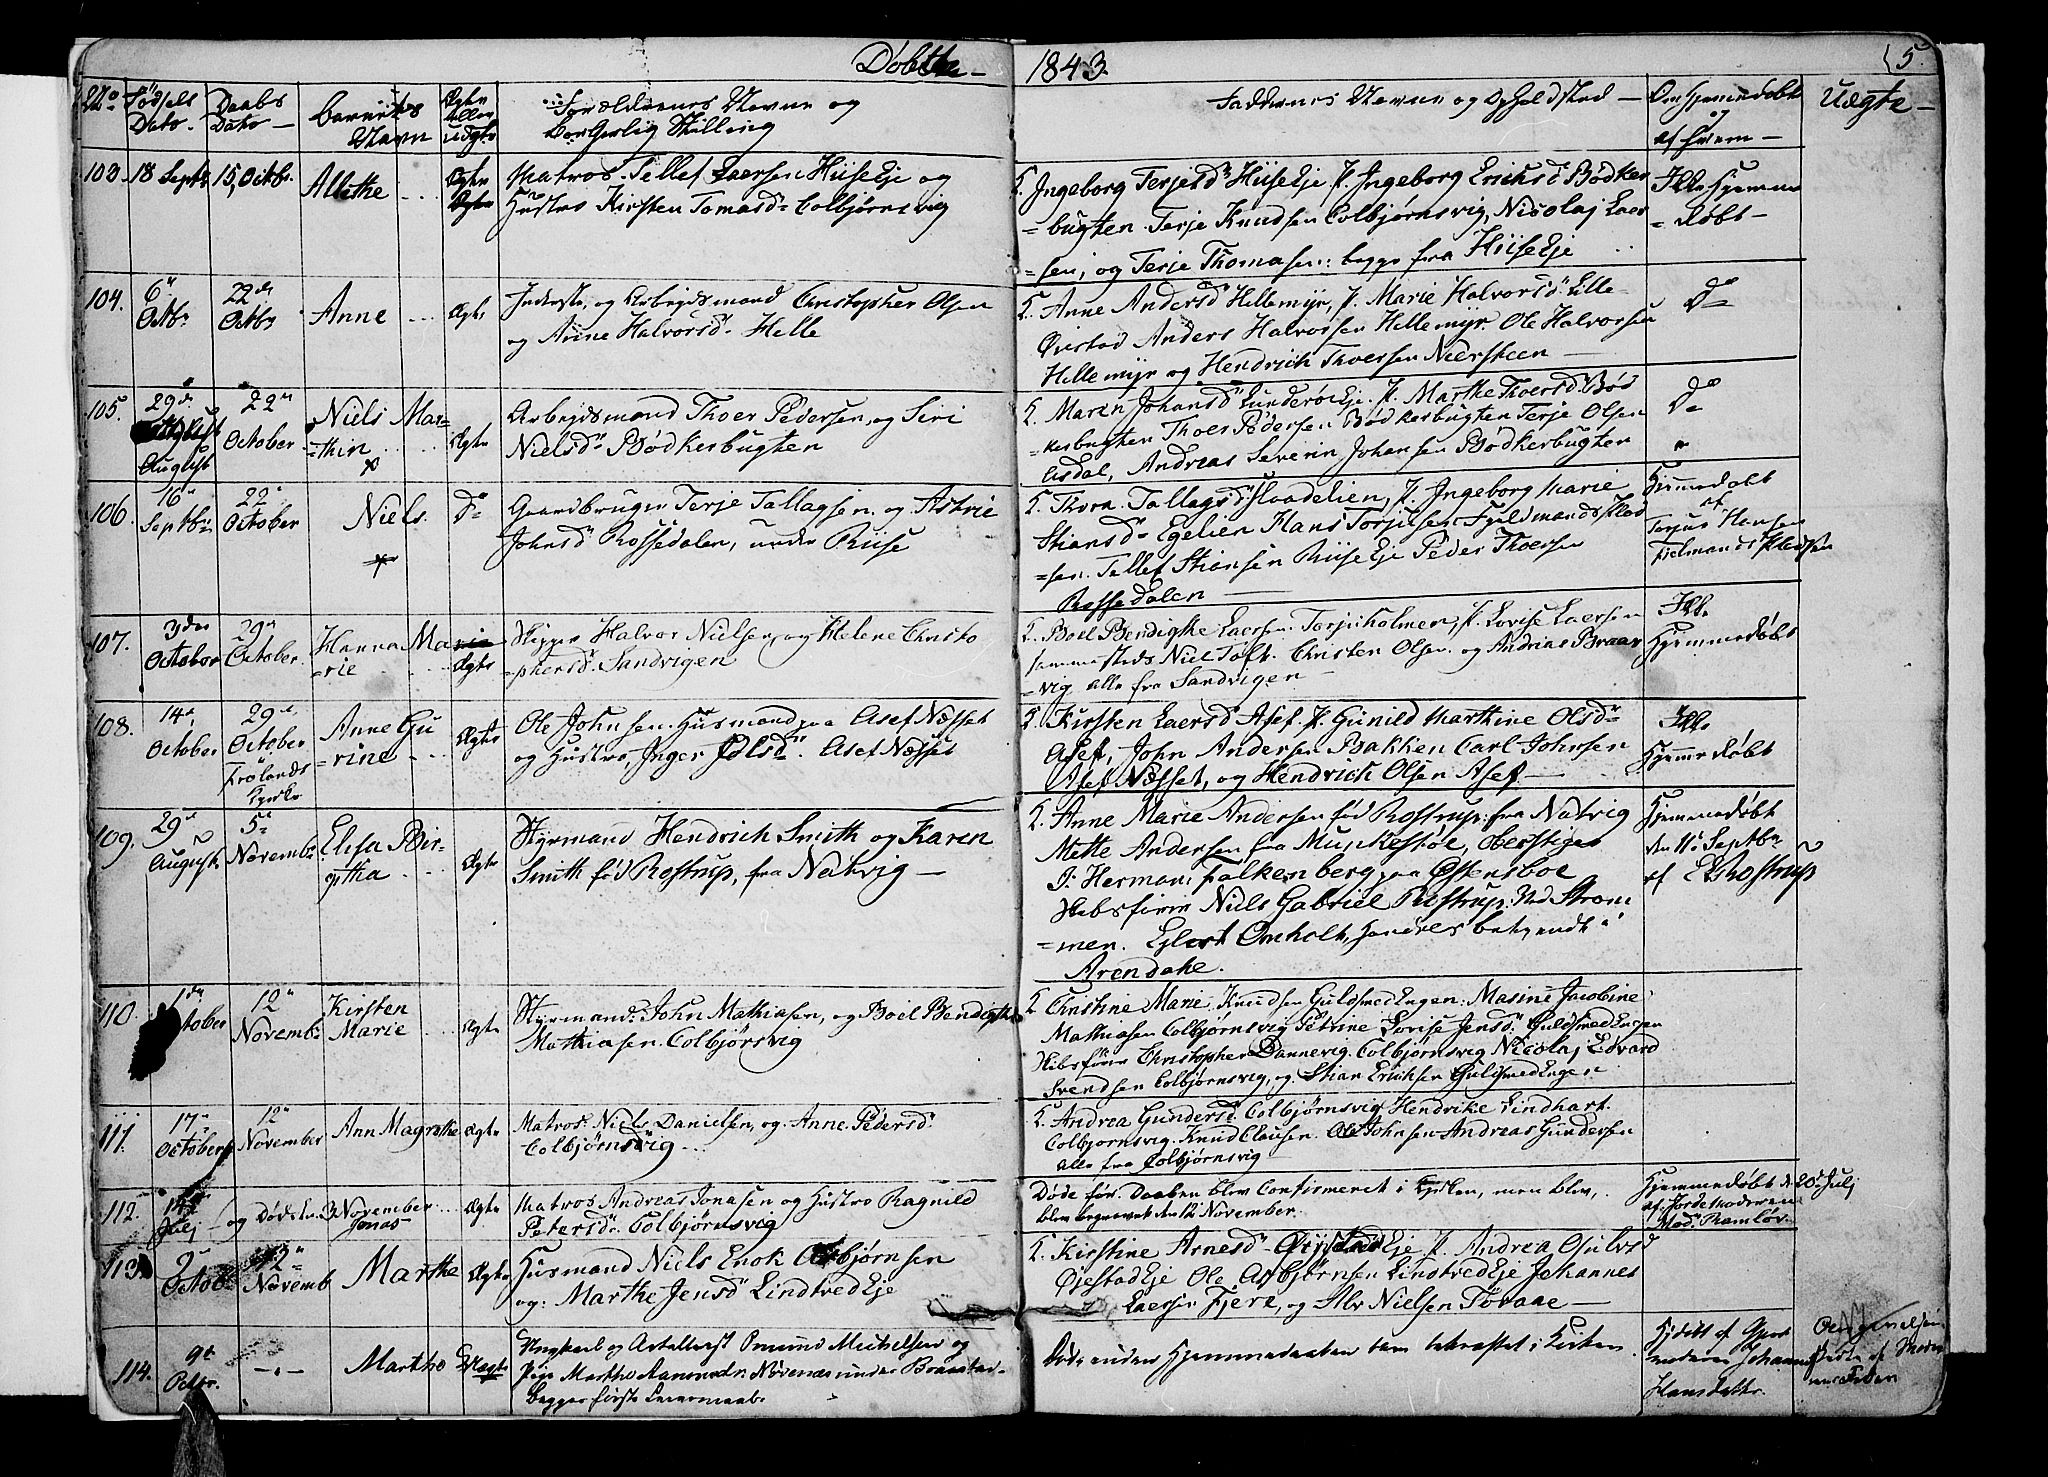 Døbte – 1843. 5.
No Fødsels Dato. Daabs Dato – Barnets Navn Ægte eller uægte Forældrenes Navne og Borgerlig Stilling
Faddernes Navne og Opholdsted – Om Hjemmedøbt og af hvem – Uægte –
103. 18 Septb. 15, Octbr. Allethe Ægte
Matros Tellef Laersen HiiseEje og
Hustro Kirsten Tomasd. Colbjørnsvig
Ingeborg Terjesd. HiiseEje Ingeborg Ericksd Bødker
bugten. Terje Knudsen Colbjørnsvig, Nicolaj Laer
sen, og Terje Thomasen: begge fra HiiseEje
Ikke Hjemme
døbt –
104. 6 Octbr 22de Octbr Anne Ægte
Inderste, og Arbejdsmand Christopher Olsen
og Anne Halvorsd. Helle
Anne Andersd Hellemyr, Marie Halvorsd. Lille
Øiestad Anders Halvorsen Hellemyr. Ole Halvorsen
Hellemyr og Hendrich Thoersen Neersteen
Do
105. 29de August 22 October Niels Mar=
=thin Ægte
Arbejdsmand Thoer Pedersen, og Siri
Nielsd. Bødkerbugten
Maren Johansd LunderøeEje. Marthe Thoersd. Bød
kerbugten Thoer Pedersen Bødkerbugten Terje Olsen
Asdal, Andreas Severin Johansen Bødkerbugten
Do
106. 16 Septbr 22 October Niels. Do
Gaardbruger Terje Tallagsen og Astrie
Johnsd Rossedalen, under Riise
Thora Tallagsd. Ingeborg Marie
Stiansd Egelien Hans Torjusen
Tellef Stiansen RiiseEje Peder Thoersen
Rossedalen
Hjemmedøbt
af
Torjus Hansen
107. 3die October 29 October. Hanna Ma
=rie Ægte
Halvor Nielsen, og Helene Christo
=phersd. Sandvigen
Boel Bendigthe Laersen. Torjusholmen, Lovise Laersen
sammesteds Niel Toft. Christen Olsen. og Andreas Braar
=vig alle fra Sandvigen
Ikke
Hjemmedøbt
108. 14de October 29de October Frølands Kyrke Anne Gu
=rine Ægte
Ole Johnsen. Husmand paa Asef Næsset
og Hustro, Inger Olsd. Asef Næsset
Kirsten Laersd Asef. Gunild Marthine Olsd
Asef, John Andersen Bakken Carl Johnsen
Asef Næsset, og Hendrich Olsen Asef
Ikke
Hjemmedøbt
109. 29de August 5 Novemb. Elisa Bir=
githa Ægte
Styrmand Hendrich Smith og Karen
Smith fød Rostrup, fra Natvig –
Anne Marie Andersen fød Rostrup: fra Natvig
Mette Andersen fra Herstiger
P: Herman: Falkenberg paa Østensboe
Skibsfører Niels Gabriel Rostrup. Ved Strøm
=men. Eglert Omholt,
Arendahl.
Hjemmedøbt
den 11 Septbr
af E Rostrup
110. 1de October 12 Novemb: Kirsten
Marie Ægte
Styrmand: John Mathiasen, og Boel Bendigthe
Mathiasen. Colbjørsvig
Christine Marie Knudsen GuldsmedEngen: Masine Jacobine
Mathiasen Colbjørnsvig Petrine Lovise Jensd. GuldsmedEngen
Skibsfører Christopher Dannevig. Colbjørnsvig Nicolaj Edvard
Svendsen Colbjørnsvig, og Stian Ericksen GuldsmedEngen
111. 17 October 12 November Ann Magrethe Ægte
Matros. Niels Danielsen, og Anne Pedersd.
Colbjørnsvig
Andrea Gundersd. Colbjørnsvig Hendrike Lindhart.
Colbjornsvig. Knud Clausen. Ole Johnsen Andreas Gundersen
alle fra Colbjørnsvig
112. 14 Julj og Døde den 3 November Jonas Ægte
Matros. Andreas Jonasen og Hustro Ragnild
Petersd. Colbjørnsvig
Døde før Daaben blev Confirmeret i Kirken, men blev
begravet den 12 November.
Hjemmedøbt d. 20 Julj
af Jordemoderen
Mad. Ramløv.
113. 9 Octob 12 Novemb Marthe Ægte
Husmand Niels Enok Asbjørnsen
og: Marthe Jensd LindtvedEje
Kirstine Arnesd ØiestadEje Andrea Osulvsd
ØjestadEje Ole Asbjørnsen LindtvedEje Johannes
Laersen Fjere, og Alv Nielsen Toraae –
114. 9de Octbr. –„– Marthe Uægte
Ungkarl og Osmund Michelsen og
Pige Marthe Aanonsd: Nævenæs under
begges første Leiermaal.
Døde uden Hjemmedaaben bekræftet i Kirken
Hjdøbt af Gjord
moderen Johanne
Hansdatter.